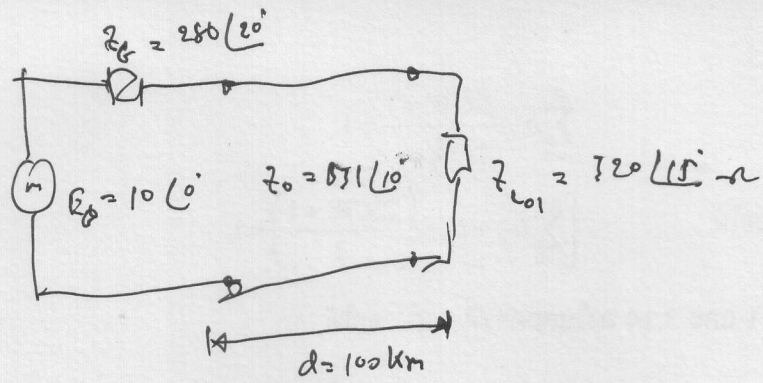 Z_G = 280∠20°
m
E_G = 10∠0°
Z_0 = 831∠10°
Z_L01 = 320∠15° Ω
d = 100 Km